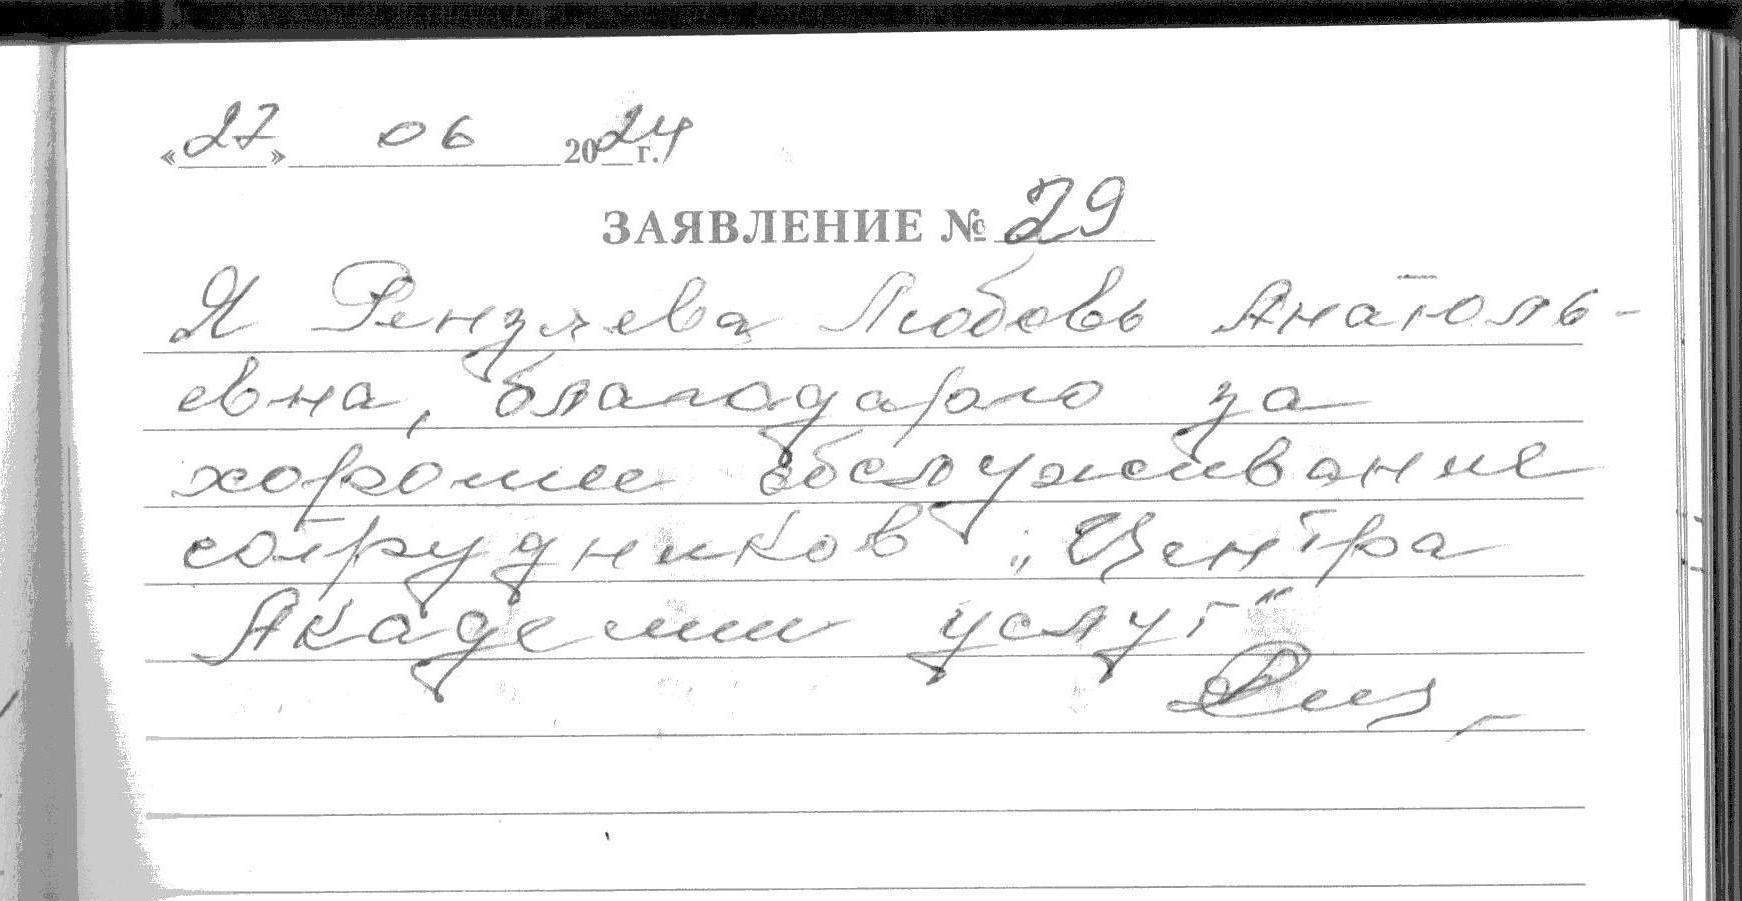 «27» 06 2024 г.
ЗАЯВЛЕНИЕ № 29
Я Рензяева Любовь Анатоль-
евна, благодарю за
хорошее обслуживание
сотрудников „Центра
Академии услуг“